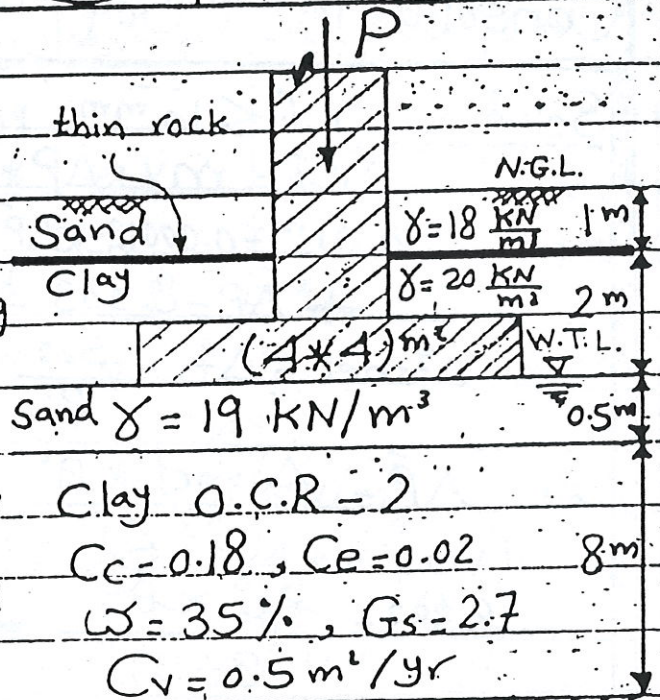 P
thin rock
N.G.L.
Sand
γ=18 KN/m³ 1m
Clay
γ=20 KN/m³ 2m
(4*4)m² W.T.L.
Sand γ = 19 KN/m³ 0.5m
Clay O.C.R = 2
Cc=0.18, Ce=0.02 8m
ω=35%, Gs=2.7
Cv=0.5 m²/yr